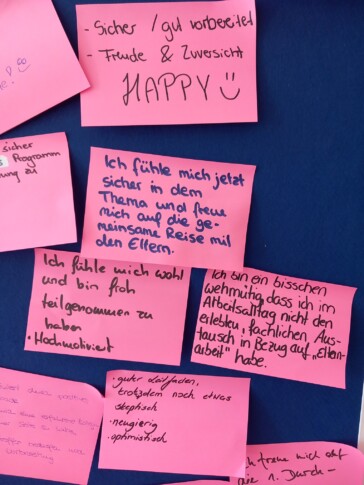 - Sicher / gut vorbereitet
- Freude & Zuversicht
HAPPY
sicher
Programm
zu
Ich fühle mich jetzt
sicher in dem
Thema und freue
mich auf die ge-
meinsame Reise mit
den Eltern.
Ich fühle mich wohl
und bin froh
teilgenommen zu
haben
· Hochmotiviert
Ich bin ein bisschen
wehmütig, dass ich im
Arbeitsalltag nicht den
erlebten, fachlichen Aus-
tausch in Bezug auf „Eltern-
arbeit" habe.
· guter Leitfaden,
trotzdem noch etwas
skeptisch
· neugierig
· optimistisch
freue mich auf
die 1. Durch-